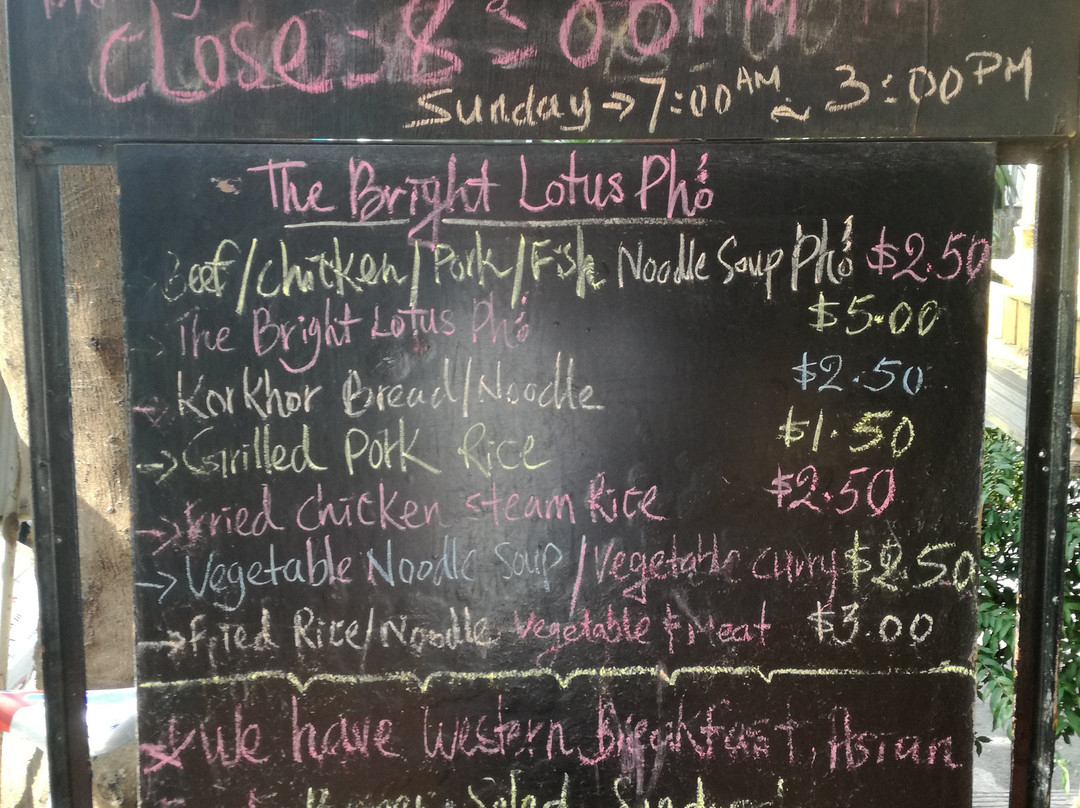 Close = 8 = 00PM
Sunday → 7:00 AM ~ 3:00 PM
The Bright Lotus Phở
Beef/chicken/Pork/Fish Noodle Soup Phở $2.50
The Bright Lotus Phở $5.00
Kor Khor Bread/Noodle $2.50
→ Grilled Pork Rice $1.50
→ Fried Chicken Steam Rice $2.50
→ Vegetable Noodle Soup / Vegetable curry $2.50
→ Fried Rice/Noodle Vegetable & Meat $3.00
We have Western Breakfast, Asian
Salad